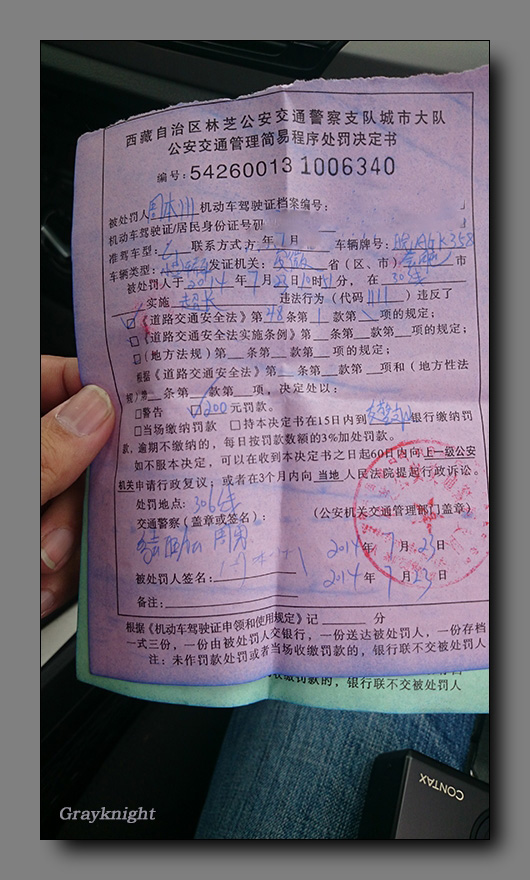 西藏自治区林芝公安交通警察支队城市大队
公安交通管理简易程序处罚决定书
编号: 54260013 1006340
被处罚人 机动车驾驶证档案编号:
机动车驾驶证/居民身份证号码
准驾车型: 联系方式 年 7 月 车辆牌号:
车辆类型: 发证机关: 安徽 省(区、市) 市
被处罚人于 2014 年 7 月 23 日 时 分, 在 306线
实施 超长 违法行为(代码 1111 )违反了
《道路交通安全法》第 48 条第 1 款第 项的规定;
《道路交通安全法实施条例》第 条第 款第 项的规定;
(地方法规) 第 条第 款第 项的规定;
根据《道路交通安全法》第 条第 款第 项和(地方性法
规)第 条第 款第 项,决定处以:
警告 200 元罚款。
当场缴纳罚款 持本决定书在15日内到 银行缴纳罚
款,逾期不缴纳的,每日按罚款数额的3%加处罚款。
如不服本决定,可以在收到本决定书之日起60日内向 上一级公安
机关申请行政复议;或者在3个月内向 当地 人民法院提起行政诉讼。
处罚地点: 306线
交通警察(盖章或签名): (公安机关交通管理部门盖章)
2014 年 7 月 23 日
被处罚人签名: 2014 年 7 月 23 日
备注:
根据《机动车驾驶证申领和使用规定》记 分
一式三份,一份由被处罚人交银行,一份送达被处罚人,一份存档
注:未作罚款处罚或者当场收缴罚款的,银行联不交被处罚人
收缴罚款的,银行联不交被处罚人
CONTAX
Grayknight